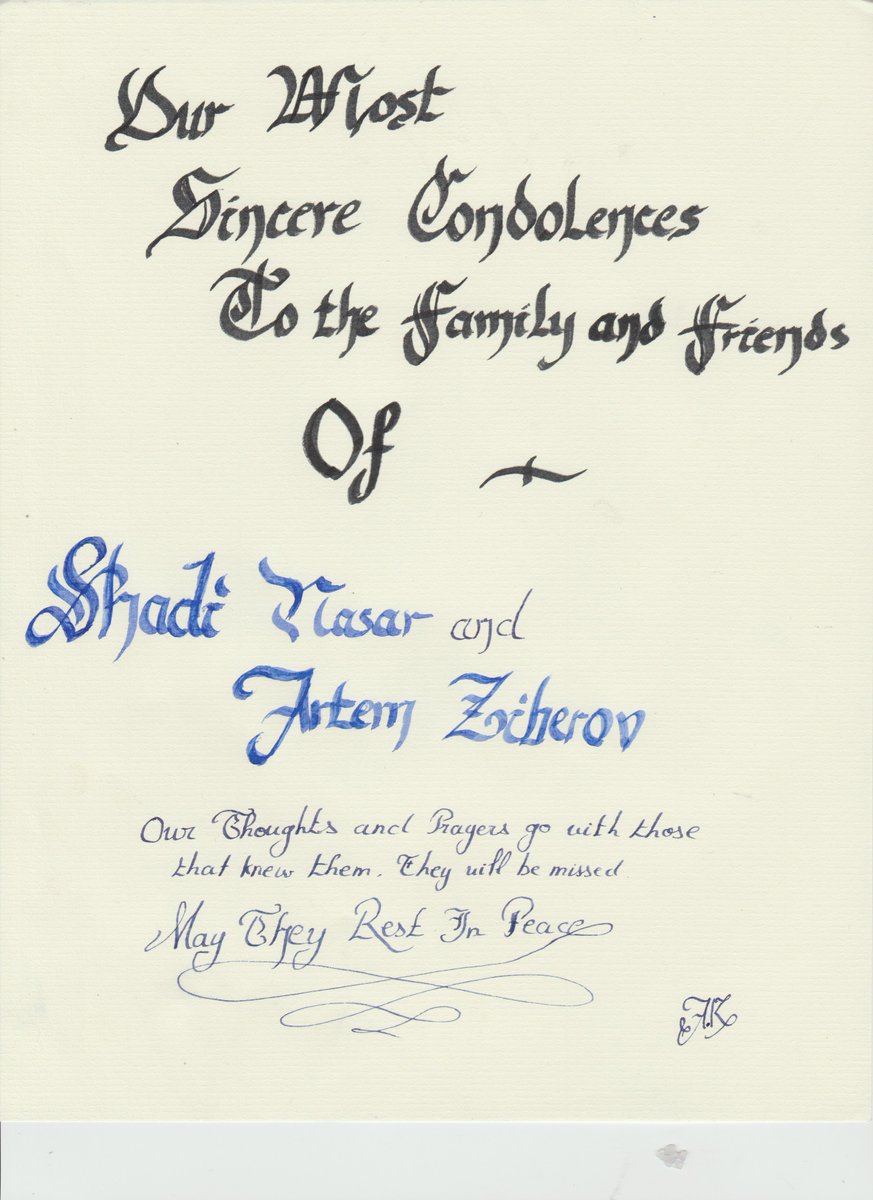 Our Most
Sincere Condolences
To the Family and Friends
Of
Shadi Nasar and
Artem Ziberov
Our Thoughts and Prayers go with those
that knew them. They will be missed
May They Rest In Peace